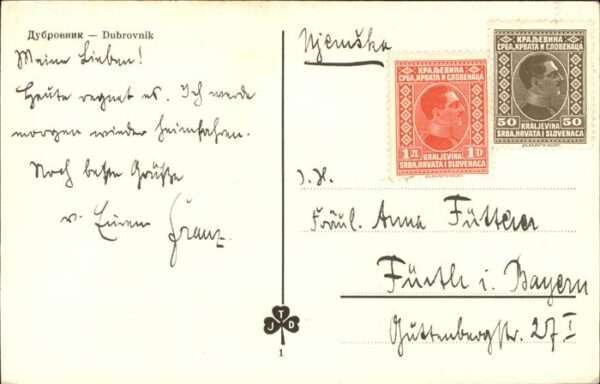 Дубровник — Dubrovnik
Meine Lieben!
Heute regnet es. Ich werde
morgen wieder heimfahren.
Noch beste Grüße
v. Eurem Franz.
Njemška
КРАЉЕВИНА
СРБА, ХРВАТА И СЛОВЕНАЦА
1 Д 1 D
KRALJEVINA
SRBA, HRVATA I SLOVENACA
КРАЉЕВИНА
СРБА, ХРВАТА И СЛОВЕНАЦА
50 50
KRALJEVINA
SRBA, HRVATA I SLOVENACA
Fräul. Anna Fütterer
Fürth i. Bayern
Guttenbergstr. 27 I
J T D
1